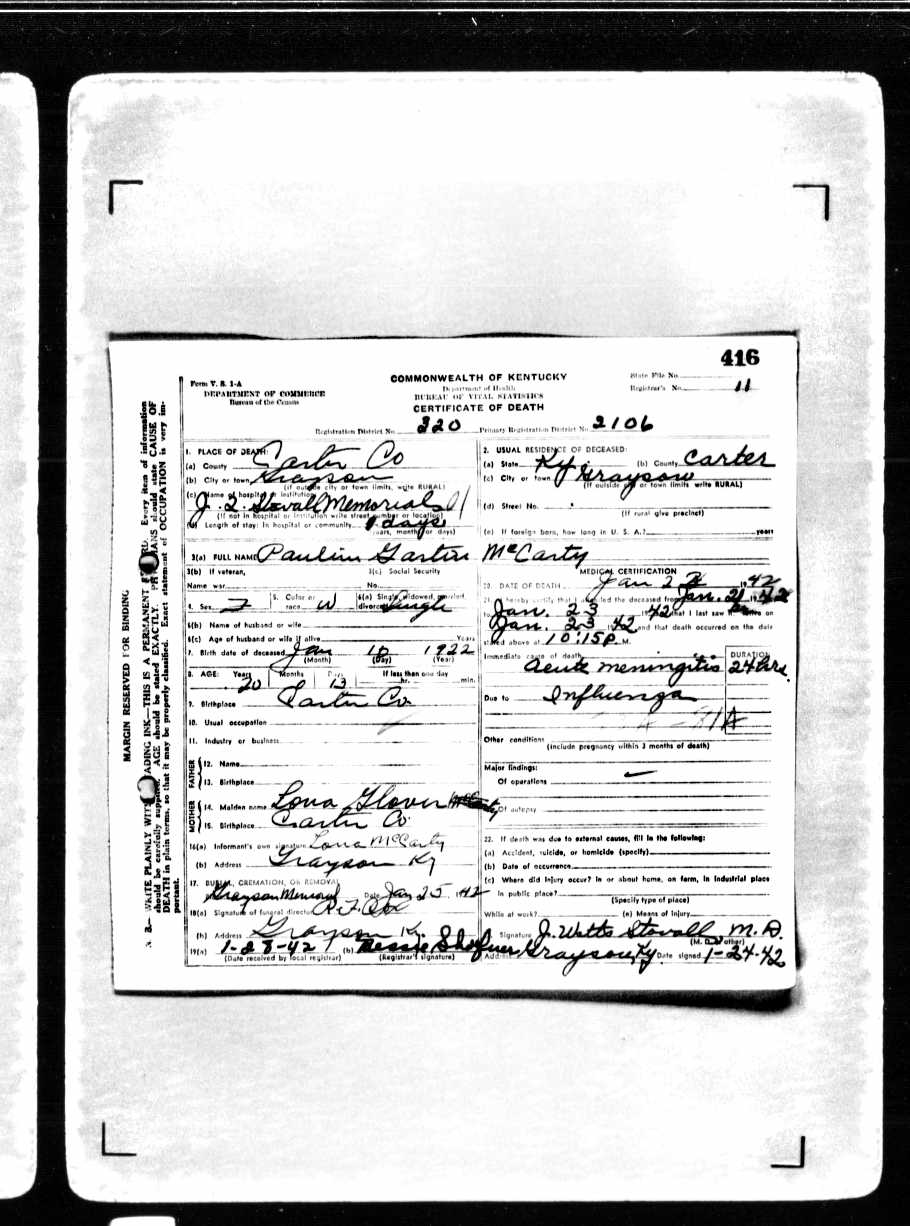 416
Form V. S. 1-A
DEPARTMENT OF COMMERCE
Bureau of the Census
COMMONWEALTH OF KENTUCKY
Department of Health
BUREAU OF VITAL STATISTICS
CERTIFICATE OF DEATH
State File No.
Registrar's No. 11
Registration District No. 320 Primary Registration District No. 2106
MARGIN RESERVED FOR BINDING
1. PLACE OF DEATH:
(a) County Carter Co
(b) City or town Grayson
(if outside city or town limits, write RURAL)
(c) Name of hospital or institution:
J. Q. Stovall Memorial
(If not in hospital or institution write street number or location)
(d) Length of stay: In hospital or community days
(years, months or days)
2. USUAL RESIDENCE OF DECEASED:
(a) State Ky. (b) County Carter
(c) City or town Grayson
(If outside city or town limits write RURAL)
(d) Street No.
(If rural give precinct)
(e) If foreign born, how long in U. S. A.? years
3(a) FULL NAME McCarty
3(b) If veteran, 3(c) Social Security
Name war No.
4. Sex F 5. Color or race W 6(a) Single, widowed, married, divorced Single
6(b) Name of husband or wife
6(c) Age of husband or wife if alive Years
7. Birth date of deceased Jan 10 1922
(Month) (Day) (Year)
8. AGE: Years Months Days If less than one day
20 0 13 hr. min.
9. Birthplace Carter Co.
10. Usual occupation
11. Industry or business
FATHER
12. Name
13. Birthplace
MOTHER
14. Maiden name Lona Glover
15. Birthplace Carter Co.
16(a) Informant's own signature Lona McCarty
(b) Address Grayson Ky
17. BURIAL, CREMATION, OR REMOVAL
Grayson Memorial Date Jan 25, 1942
18(a) Signature of funeral director
(b) Address Grayson Ky.
19(a) 1-28-42 (b) Bessie
(Date received by local registrar) (Registrar's signature)
MEDICAL CERTIFICATION
20. DATE OF DEATH Jan 1942
21. I hereby certify that I attended the deceased from Jan. 21, 1942
to Jan. 23 1942 that I last saw alive on
Jan. 23 1942, and that death occurred on the date
stated above at 10:15 P. M.
Immediate cause of death DURATION
Acute meningitis 24 hrs.
Due to Influenza
Other conditions
(include pregnancy within 3 months of death)
Major findings:
Of operations
Of autopsy
22. If death was due to external causes, fill in the following:
(a) Accident, suicide, or homicide (specify)
(b) Date of occurrence
(c) Where did injury occur? in or about home, on farm, in industrial place
in public place?
(Specify type of place)
While at work? (e) Means of injury
Signature J. Watts Stovall, M. D.
(M. D. or other)
Address Grayson, Ky. Date signed 1-24-42